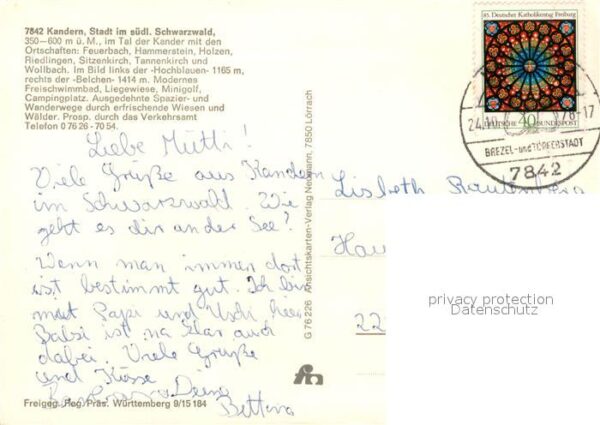 7842 Kandern, Stadt im südl. Schwarzwald,
350–600 m ü. M., im Tal der Kander mit den
Ortschaften: Feuerbach, Hammerstein, Holzen,
Riedlingen, Sitzenkirch, Tannenkirch und
Wollbach. Im Bild links der ‹Hochblauen› 1165 m,
rechts der ‹Belchen› 1414 m. Modernes
Freischwimmbad, Liegewiese, Minigolf,
Campingplatz. Ausgedehnte Spazier- und
Wanderwege durch erfrischende Wiesen und
Wälder. Prosp. durch das Verkehrsamt
Telefon 0 76 26 - 70 54.
Liebe Mutti!
Viele Grüße aus Kandern
im Schwarzwald. Wie
geht es dir an der See?
Wenn man immer dort
ist bestimmt gut. Ich bin
mit Papi und Uschi hier
ist na klar auch
dabei. Viele Grüße
und Küsse
Deine
Bettina
Freigeg. Reg. Präs. Württemberg 9/15 184
G 76 226 Ansichtskarten-Verlag Neumann, 7850 Lörrach
85. Deutscher Katholikentag Freiburg
40
DEUTSCHE BUNDESPOST
24.10. 78-17
BREZEL- und TÖPFERSTADT
7842
Lisbeth
Hau
22
privacy protection
Datenschutz